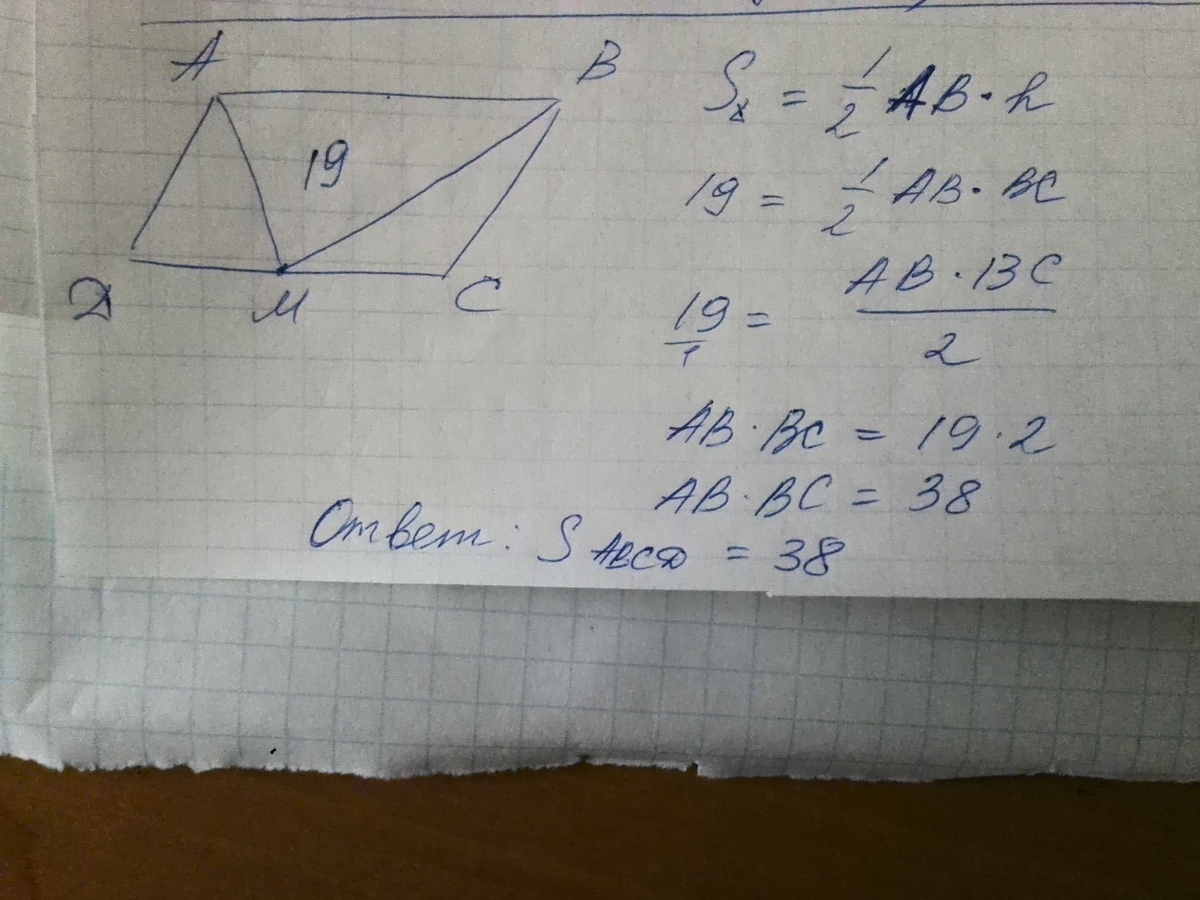 A
B
19
Д
М
С
S▵ = 1/2 AB · h
19 = 1/2 AB · BC
19/1 = AB · BC/2
AB · BC = 19 · 2
AB · BC = 38
Ответ: S ABCД = 38